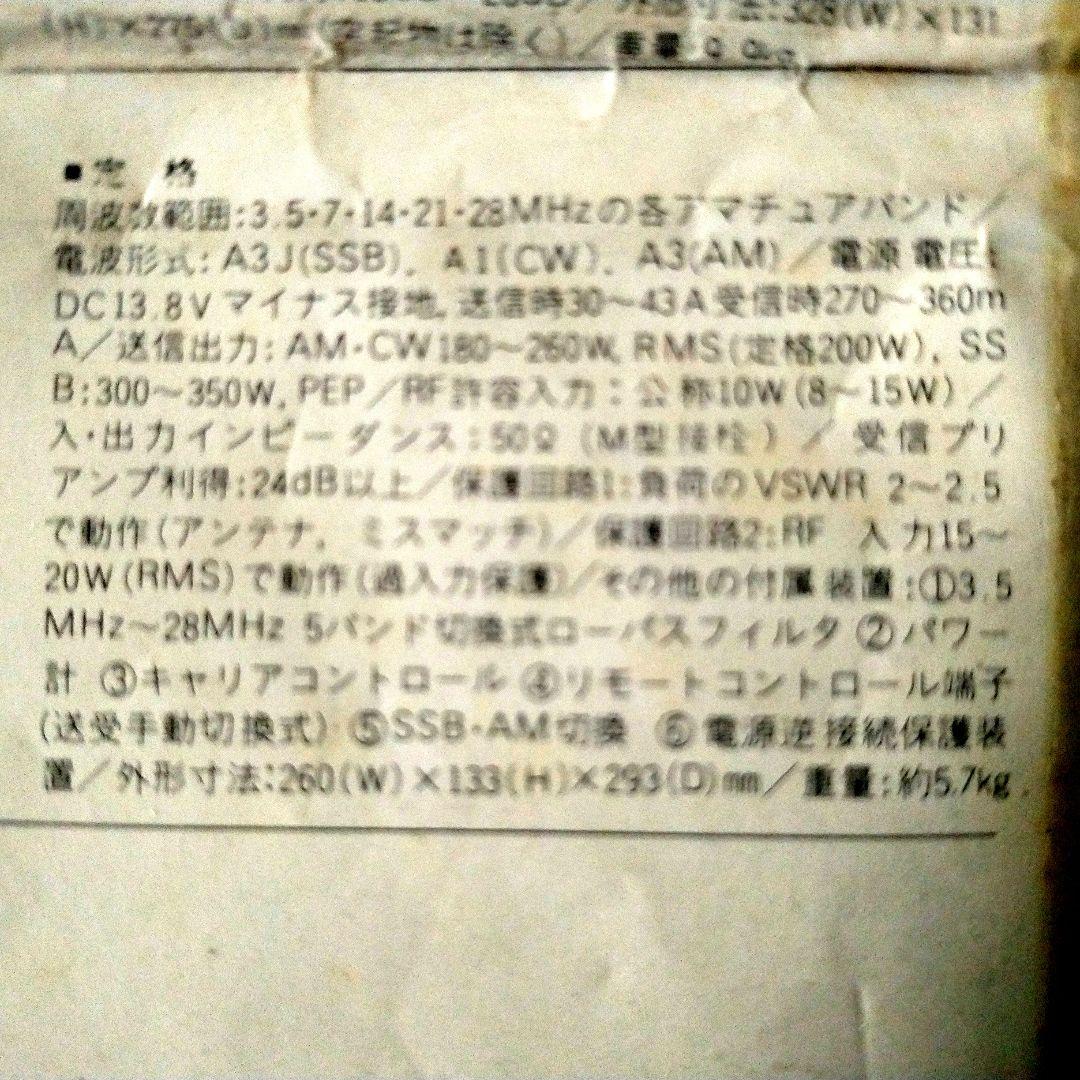 法:328(W)×131
(H)×275(D)m (突起物は除く)／重量
■定 格
周波数範囲:3.5・7・14・21・28MHzの各アマチュアバンド／
電波形式:A3J(SSB), A1(CW), A3(AM)／電源電圧:
DC13.8Vマイナス接地, 送信時30〜43A受信時270〜360m
A／送信出力:AM・CW180〜260W, RMS(定格200W), SS
B:300〜350W, PEP／RF許容入力:公称10W(8〜15W)／
入・出力インピーダンス:50Ω (M型接栓)／受信プリ
アンプ利得:24dB以上／保護回路1:負荷のVSWR 2〜2.5
で動作(アンテナ, ミスマッチ)／保護回路2:RF 入力15〜
20W(RMS)で動作(過入力保護)／その他の付属装置:①3.5
MHz〜28MHz 5バンド切換式ローパスフィルタ ②パワー
計 ③キャリアコントロール ④リモートコントロール端子
(送受手動切換式) ⑤SSB・AM切換 ⑥電源逆接続保護装
置／外形寸法:260(W)×133(H)×293(D)mm／重量:約5.7kg.